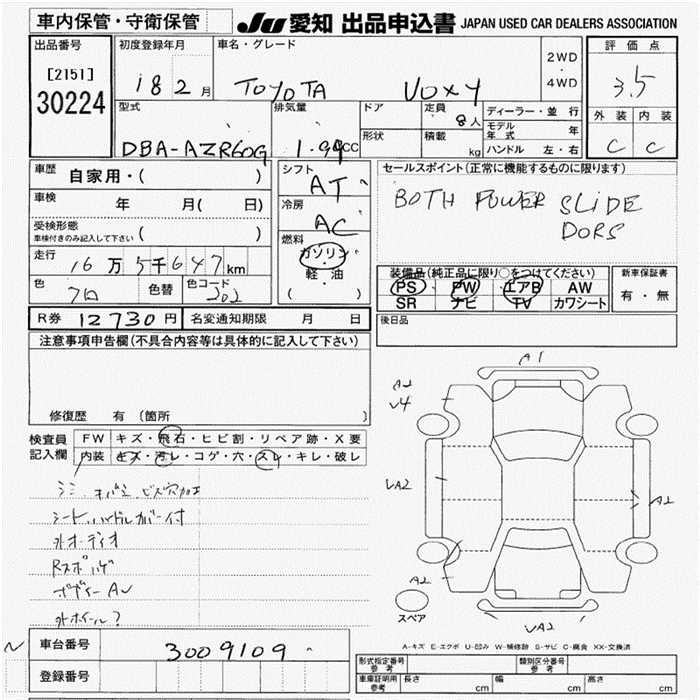 車内保管・守衛保管
JU 愛知 出品申込書 JAPAN USED CAR DEALERS ASSOCIATION
出品番号
[2151]
30224
初度登録年月
18 2 月
車名・グレード
TOYOTA VOXY
2WD
4WD
評価点
3.5
外装 内装
C C
型式
DBA-AZR60G
排気量
1.99cc
ドア
形状
定員
8人
積載
kg
ディーラー・並行
モデル年式 年
ハンドル 左・右
車歴
自家用・( )
車検 年 月( 日)
受検形態
車検付きのみ記入して下さい ( )
走行
16万5千647km
色
色替
色コード
202
シフト
AT
冷房
AC
燃料
ガソリン
軽・油
( )
セールスポイント(正常に機能するものに限ります)
BOTH POWER SLIDE
DORS
装備品(純正品に限り○をつけてください)
PS PW エアB AW
SR ナビ TV カワシート
新車保証書
有・無
後日品
R券 12730円
名変通知期限 月 日
注意事項申告欄(不具合内容等は具体的に記入して下さい)
修復歴 有(箇所 )
検査員
記入欄
FW キズ・飛石・ヒビ割・リペア跡・X要
内装 キズ・汚レ・コゲ・穴・スレ・キレ・破レ
シート、ハンドルカバー付
外オーディオ
ボディーAU
外ホイール?
A1
A2
V4
VA2
A2
A2
VA2
スペア
A-キズ E-エクボ U-凹み W-補修跡 S-サビ C-腐食 XX-交換済
車台番号
3009109
登録番号
形式指定番号
参考
類別区分番号
参考
車庫証明用
参考
長さ cm
幅 cm
高さ cm